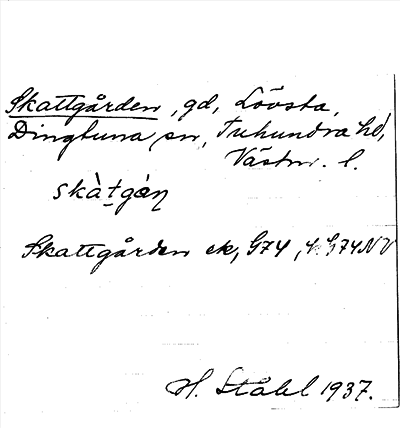 Skattgården, gd, Lövsta,
Dingtuna sn, Tuhundra hd,
Västm. l.
skàt̠gàṇ
Skattgården ek, G74, G74NV
H. Ståhl 1937.